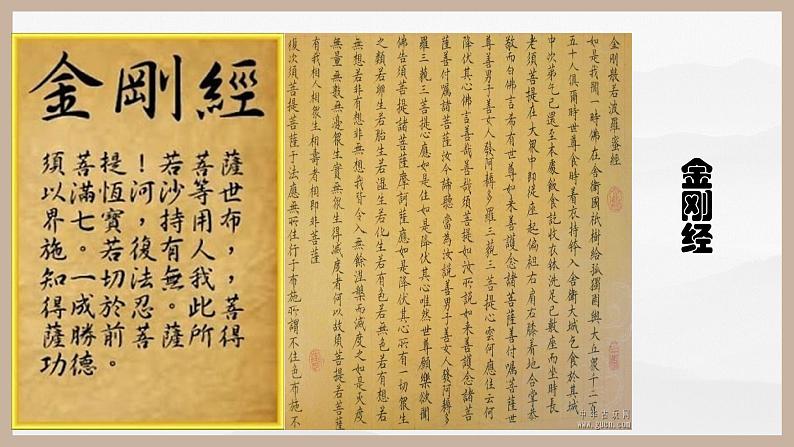 金剛經
須菩提！若菩薩
以滿恆河沙等世
界七寶，持用布
施。若復有人，
知一切法無我，
得成於忍。此菩
薩勝前菩薩所得
功德。
金剛般若波羅蜜經
如是我聞一時佛在舍衛國祇樹給孤獨園與大丘眾千二百
五十人俱爾時世尊食時著衣持鉢入舍衛大城乞食於其城
中次第乞已還至本處飯食訖收衣鉢洗足已敷座而坐時長
老須菩提在大眾中即從座起偏袒右肩右膝着地合掌恭
敬而白佛言希有世尊如來善護念諸菩薩善付囑諸菩薩世
尊善男子善女人發阿耨多羅三藐三菩提心云何應住云何
降伏其心佛言善哉善哉須菩提如汝所說如來善護念諸菩
薩善付囑諸菩薩汝今諦聽當為汝說善男子善女人發阿耨多
羅三藐三菩提心應如是住如是降伏其心唯然世尊願樂欲聞
佛告須菩提諸菩薩摩訶薩應如是降伏其心所有一切眾生
之類若卵生若胎生若濕生若化生若有色若無色若有想若
無想若非有想非無想我皆令入無餘涅槃而滅度之如是滅度
無量無數無邊眾生實無眾生得滅度者何以故須菩提若菩薩
有我相人相眾生相壽者相即非菩薩
復次須菩提菩薩于法應無所住行于布施所謂不住色布施不
中华古玩网
www.gucn.com
金刚经